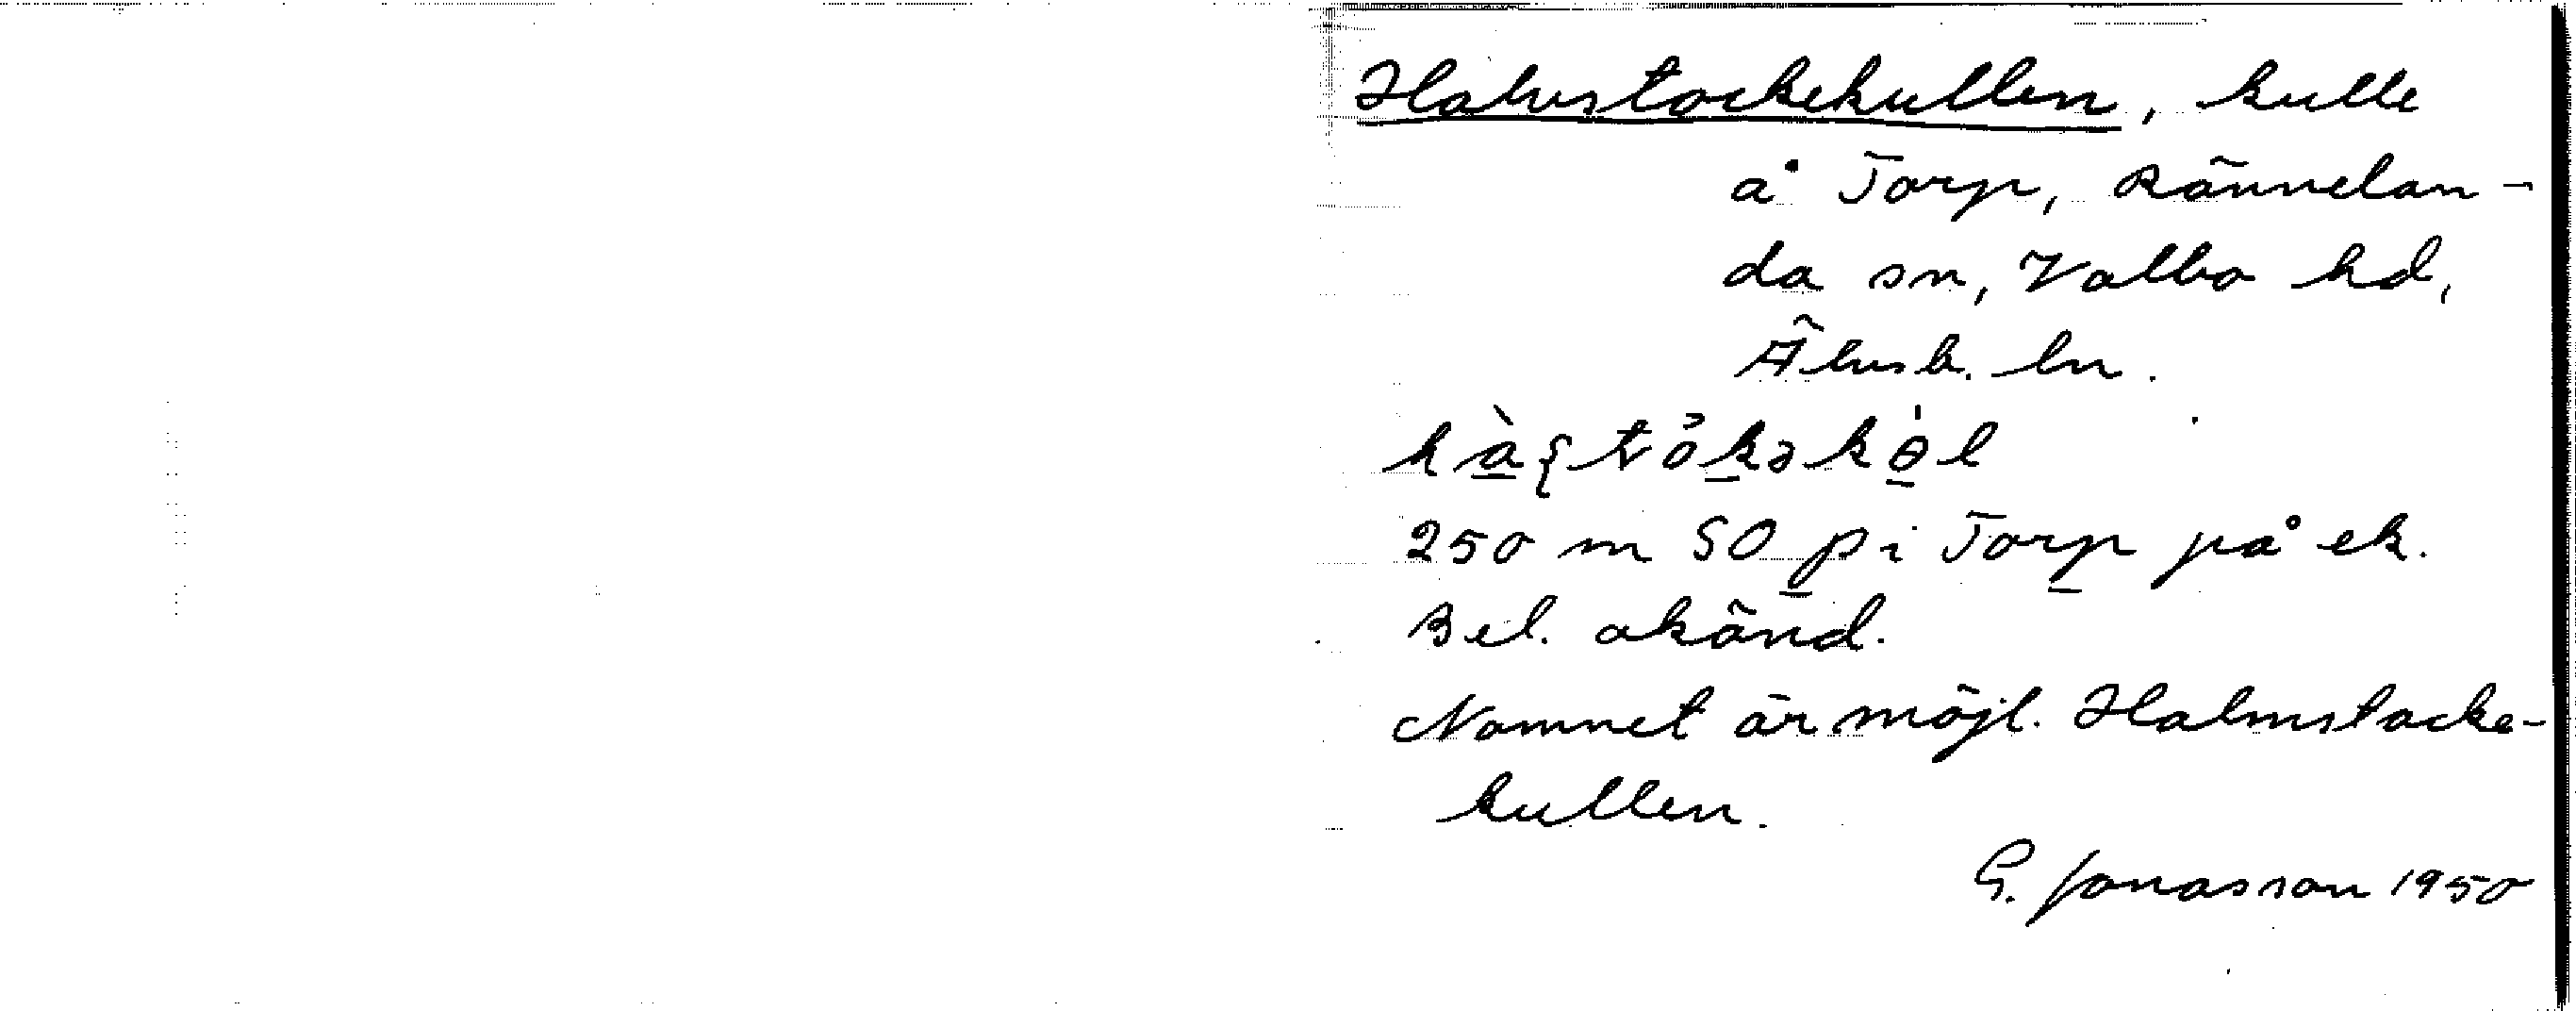 Halvstockekullen, kulle
å Torp, Rännelan-
da sn, Valbo hd,
Älvsb. ln.
250 m SO p i Torp på ek.
Bel. okänd.
Namnet är möjl. Halmstacke-
kullen.
G. Jonasson 1950